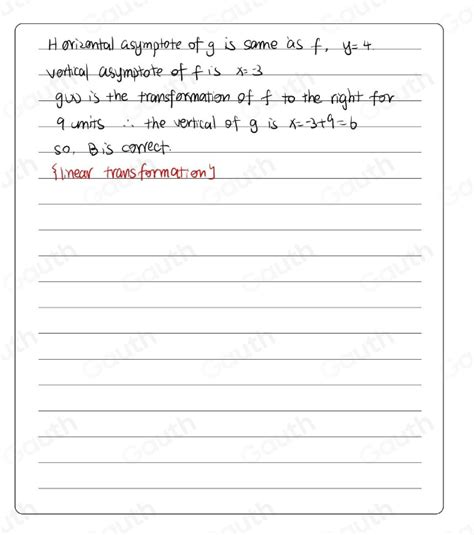 Horizontal asymptote of g is same as f, y=4
vertical asymptote of f is x=3
g(x) is the transformation of f to the right for
9 units ∴ the vertical of g is x=-3+9=6
so, B is correct.
{linear transformation}